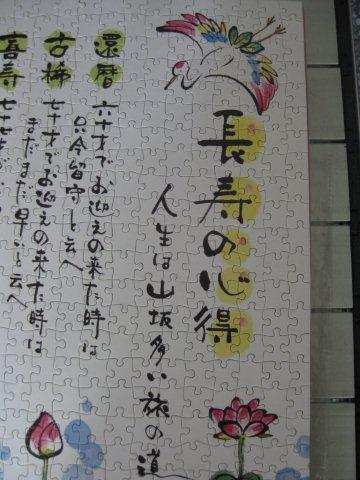 長寿の心得
人生は山坂多い旅の道
還暦
六十才でお迎えの来た時は
只今留守と云へ
古稀
七十才でお迎えの来た時は
まだまだ早いと云へ
喜寿
七十七才で